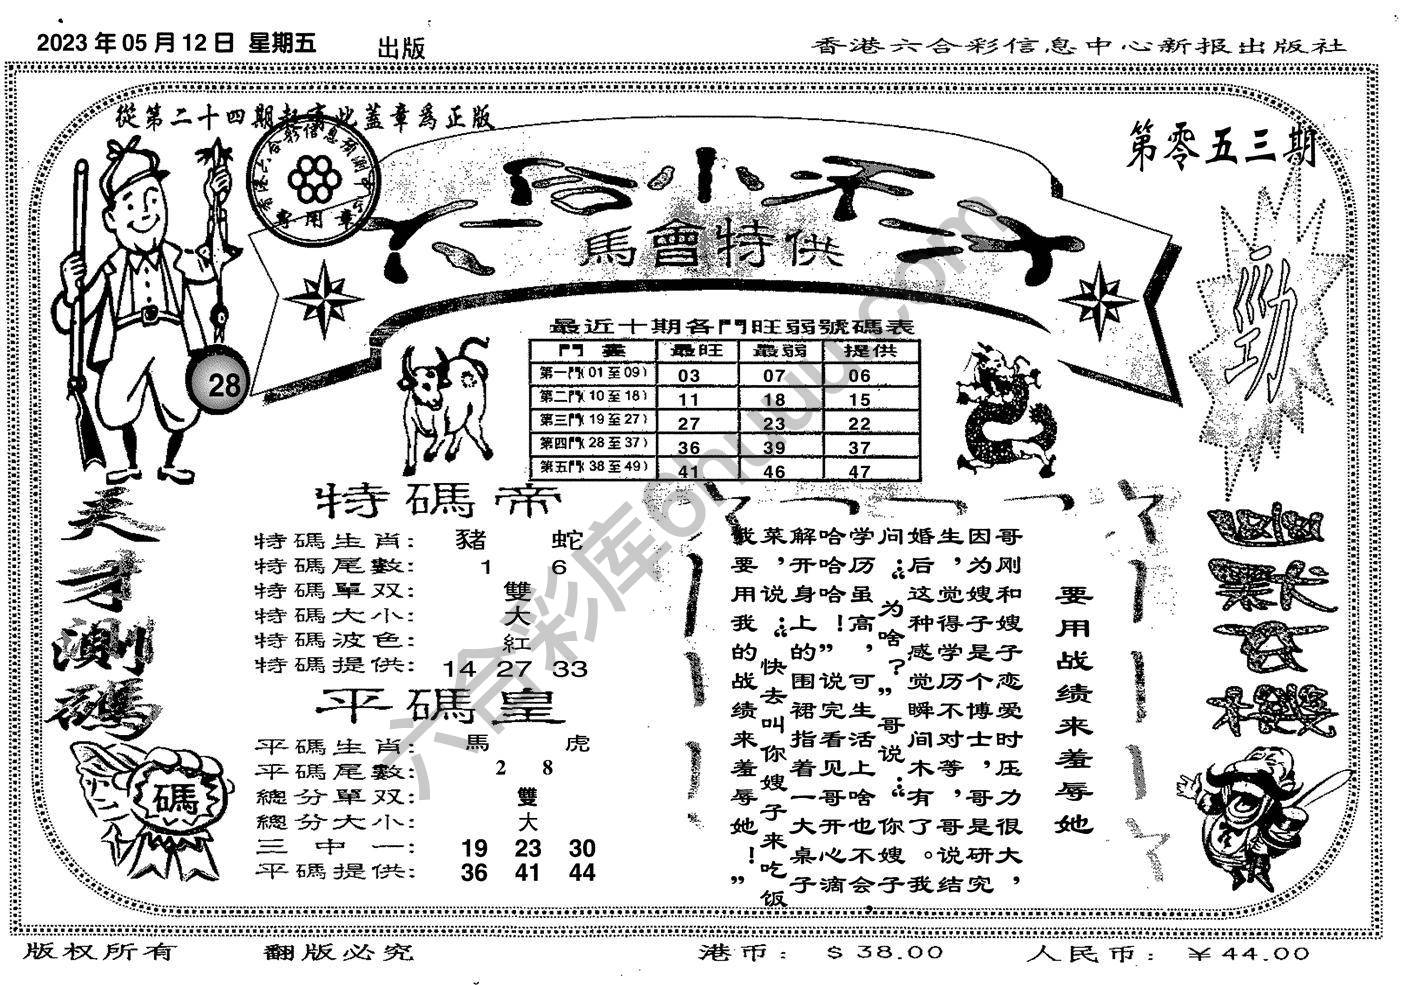 2023年05月12日 星期五
出版
香港六合彩信息中心新报出版社
從第二十四期起有此蓋章爲正版
第零五三期
專用章
馬會特供
勁
28
最近十期各門旺弱號碼表
門 最旺 最弱 提供
第一門(01至09) 03 07 06
第二門(10至18) 11 18 15
第三門(19至27) 27 23 22
第四門(28至37) 36 39 37
第五門(38至49) 41 46 47
天才測碼
特碼帝
特碼生肖: 豬 蛇
特碼尾數: 1 6
特碼單双: 雙
特碼大小: 大
特碼波色: 紅
特碼提供: 14 27 33
平碼皇
平碼生肖: 馬 虎
平碼尾數: 2 8
總分單双: 雙
總分大小: 大
三中一: 19 23 30
平碼提供: 36 41 44
碼
要用战绩来羞辱她
哥刚和嫂子恋爱时压力很大，
因为嫂子是个博士，哥是研究
生，觉得学历不对等，哥说结
婚后，这种感觉瞬间木有了。我
问：“为啥？”哥说：“你嫂子
学历虽高，可生活上啥也不会，
哈哈哈！”说完看见哥开心滴
解开身上的围裙指着一大桌子
菜，说：“快去叫你嫂子来吃饭
我要用我的战绩来羞辱她！”
版权所有
翻版必究
港币: $38.00
人民币: ￥44.00
六合彩库6huuu.com